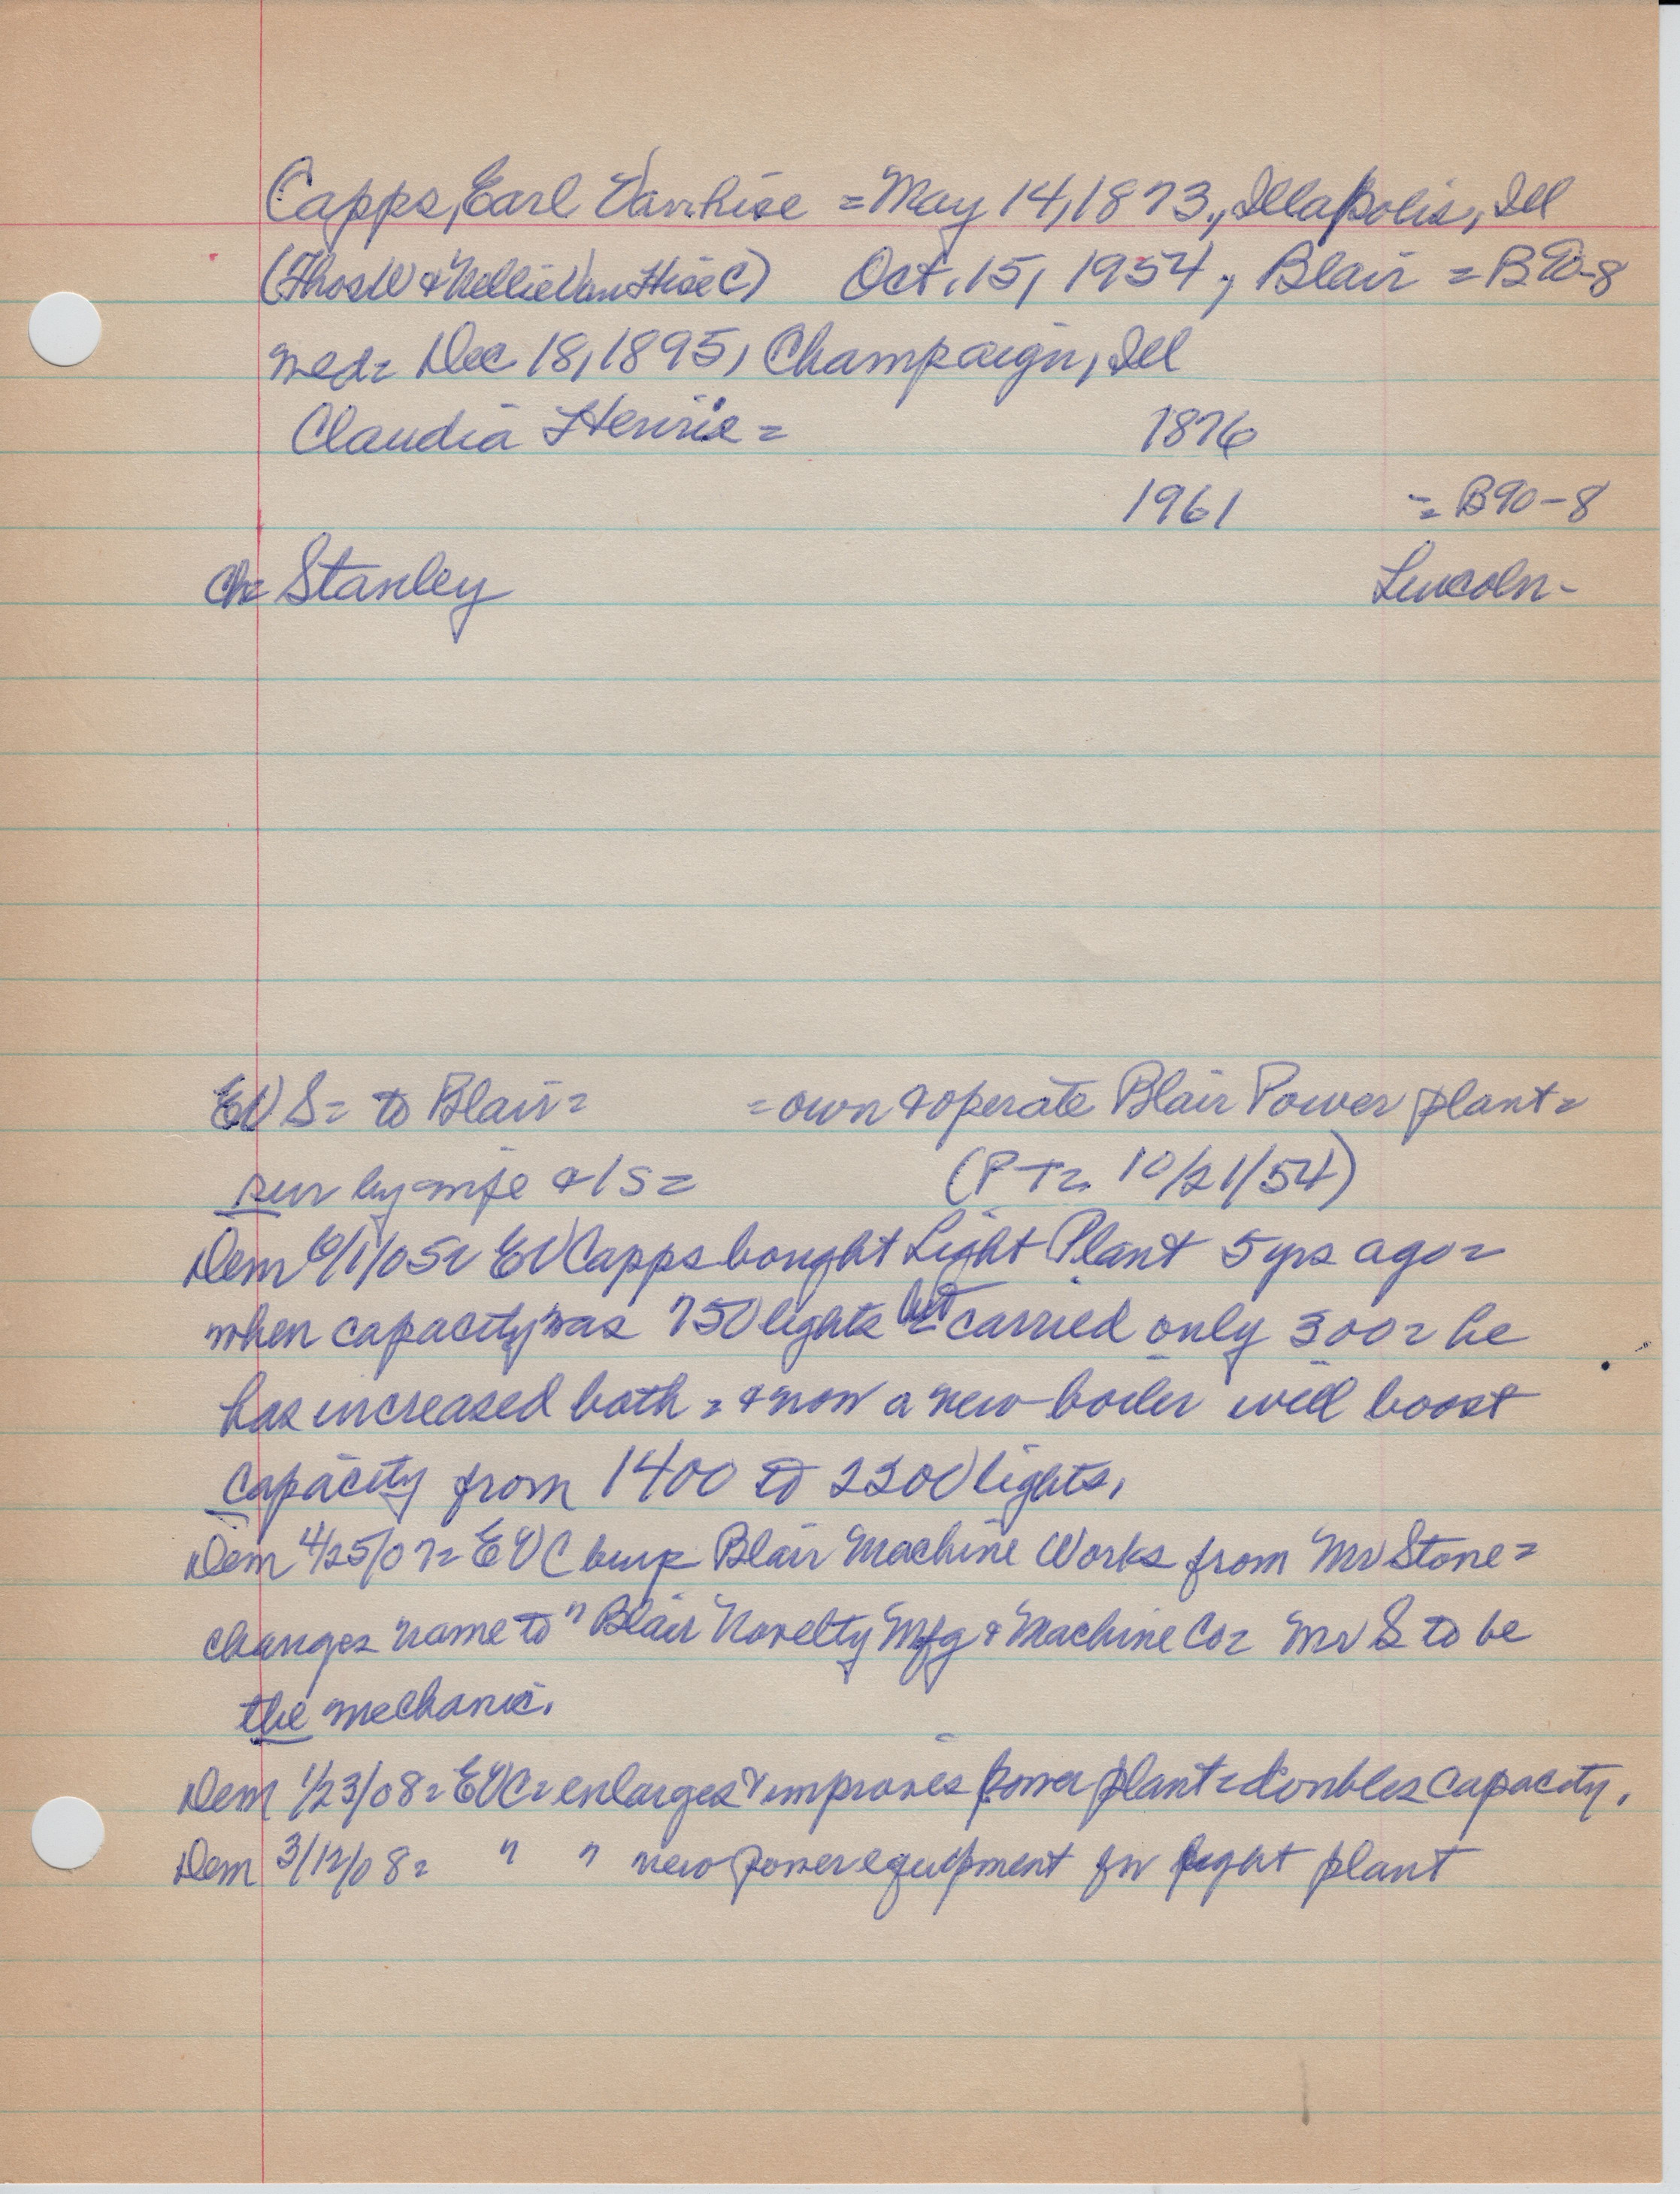 Capps, Earl Vanhise = May 14, 1873., Illapolis, Ill
(Thos W & Nellie Van Hise C) Oct. 15, 1954, Blair = B90-8
med = Dec 18, 1895, Champaign, Ill
Claudia Henrie = 1876
1961 = B90-8
Ch = Stanley Lincoln-
EV S = to Blair = = own & operate Blair Power plant =
sur by wife & 1 S = (PT = 10/21/54)
Dem 6/1/05 = EV Capps bought Light Plant 5 yrs ago =
when capacity was 750 lights but carried only 300 = he
has increased both = & now a new boiler will boost
capacity from 1400 to 2200 lights,
Dem 4/25/07 = EVC buys Blair Machine Works from Mr Stone =
changes name to " Blair Novelty Mfg & Machine Co = Mr S to be
the mechanic.
Dem 1/23/08 = EVC = enlarges & improves power plant = doubles capacity.
Dem 3/12/08 = " " new power equipment for light plant